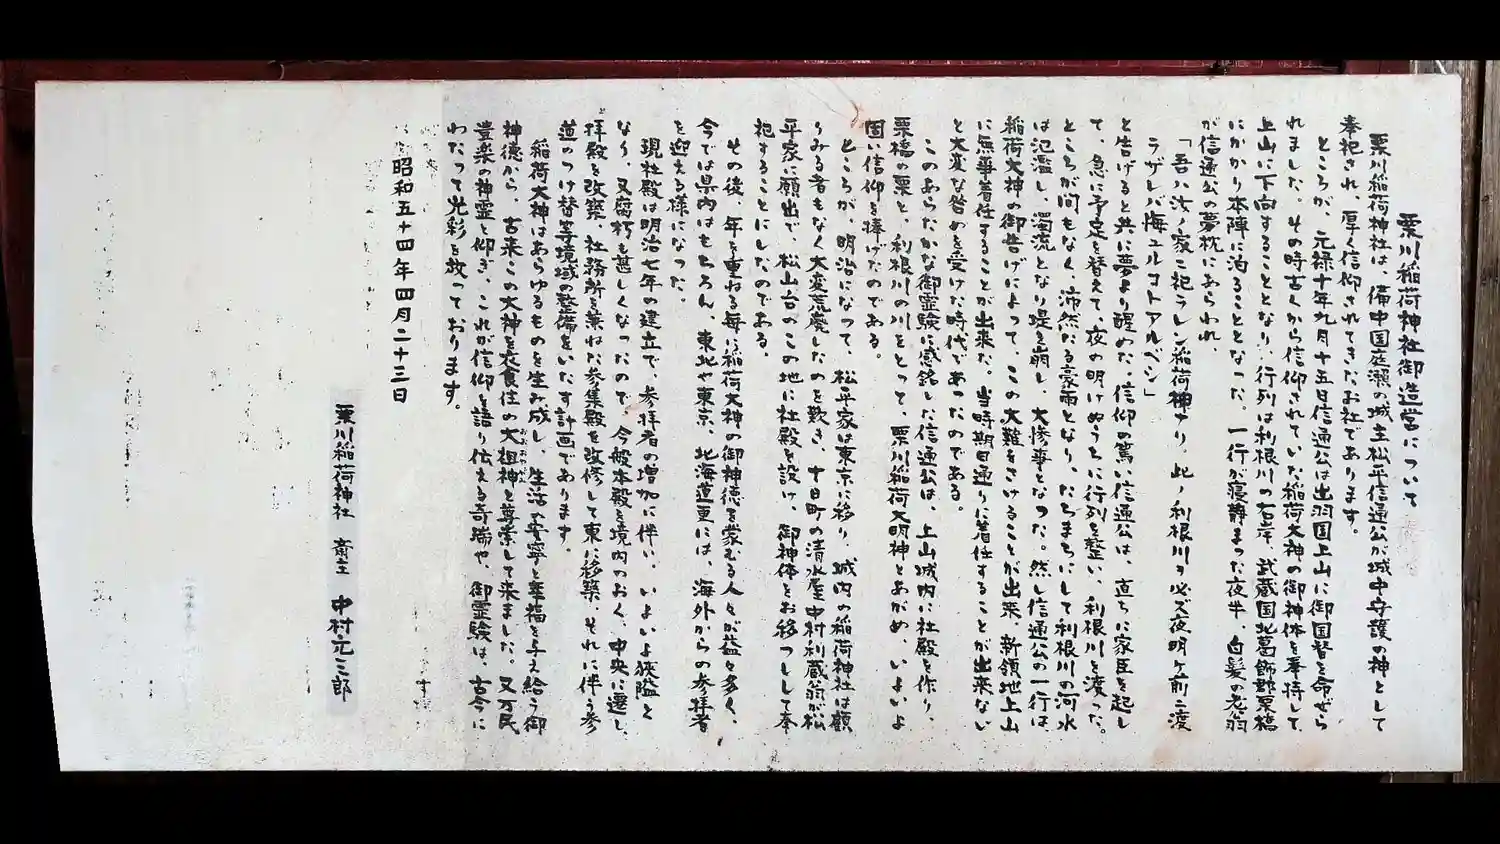 栗川稲荷神社御造営について
栗川稲荷神社は、備中国庭瀬の城主松平信通公が城中守護の神として
奉祀され、厚く信仰されてきたお社であります。
ところが、元禄十年九月十五日信通公は出羽国上山に御国替を命ぜら
れました。その時古くから信仰されていた稲荷大神の御神体を奉持して、
上山に下向することとなり、行列は利根川の右岸、武蔵国北葛飾郡栗橋
にかかり本陣に泊ることとなった。一行が寝静まった夜半、白髪の老翁
が信通公の夢枕にあらわれ、
「吾ハ汝ノ家ニ祀ラレシ稲荷神ナリ、此ノ利根川ヲ必ズ夜明ケ前ニ渡
ラザレバ悔ユルコトアルベシ」
と告げると共に夢より醒めた。信仰の篤い信通公は、直ちに家臣を起し
て、急に予定を替えて、夜の明けぬうちに行列を整い、利根川を渡った。
ところが間もなく、沛然たる豪雨となり、たちまちにして利根川の河水
は氾濫し、濁流となり堤を崩し、大惨事となった。然し信通公の一行は
稲荷大神の御告げによって、この大難をさけることが出来、新領地上山
に無事着任することが出来た。当時期日通りに着任することが出来ない
と大変な咎めを受けた時代であったのである。
このあらたかな御霊験に感銘した信通公は、上山城内に社殿を作り、
栗橋の栗と、利根川の川をとって、栗川稲荷大明神とあがめ、いよいよ
固い信仰を捧げたのである。
ところが、明治になって、松平家は東京に移り、城内の稲荷神社は顧
りみる者もなく大変荒廃したのを歎き、十日町の清水屋中村利蔵翁が松
平家に願出で、松山台のこの地に社殿を設け、御神体をお移しして奉
祀することにしたのである。
その後、年を重ねる毎に稲荷大神の御神徳を蒙むる人々が益々多く、
今では県内はもちろん、東北や東京、北海道更には、海外からの参拝者
を迎える様になった。
現社殿は明治七年の建立で、参拝者の増加に伴い、いよいよ狭隘と
なり、又腐朽も甚しくなったので、今般本殿を境内のおく、中央に遷し、
拝殿を改築、社務所を兼ねた参集殿を改修して東に移築、それに伴う参
道のつけ替等境域の整備をいたす計画であります。
稲荷大神はあらゆるものを生み成し、生活に安寧と幸福を与え給う御
神徳から、古来この大神を衣食住の大祖神と尊崇して来ました。又万民
豊楽の神霊と仰ぎ、これが信仰を語り伝える奇瑞や、御霊験は、古今に
わたって光彩を放っております。
昭和五十四年四月二十三日
栗川稲荷神社 斎主 中村元三郎